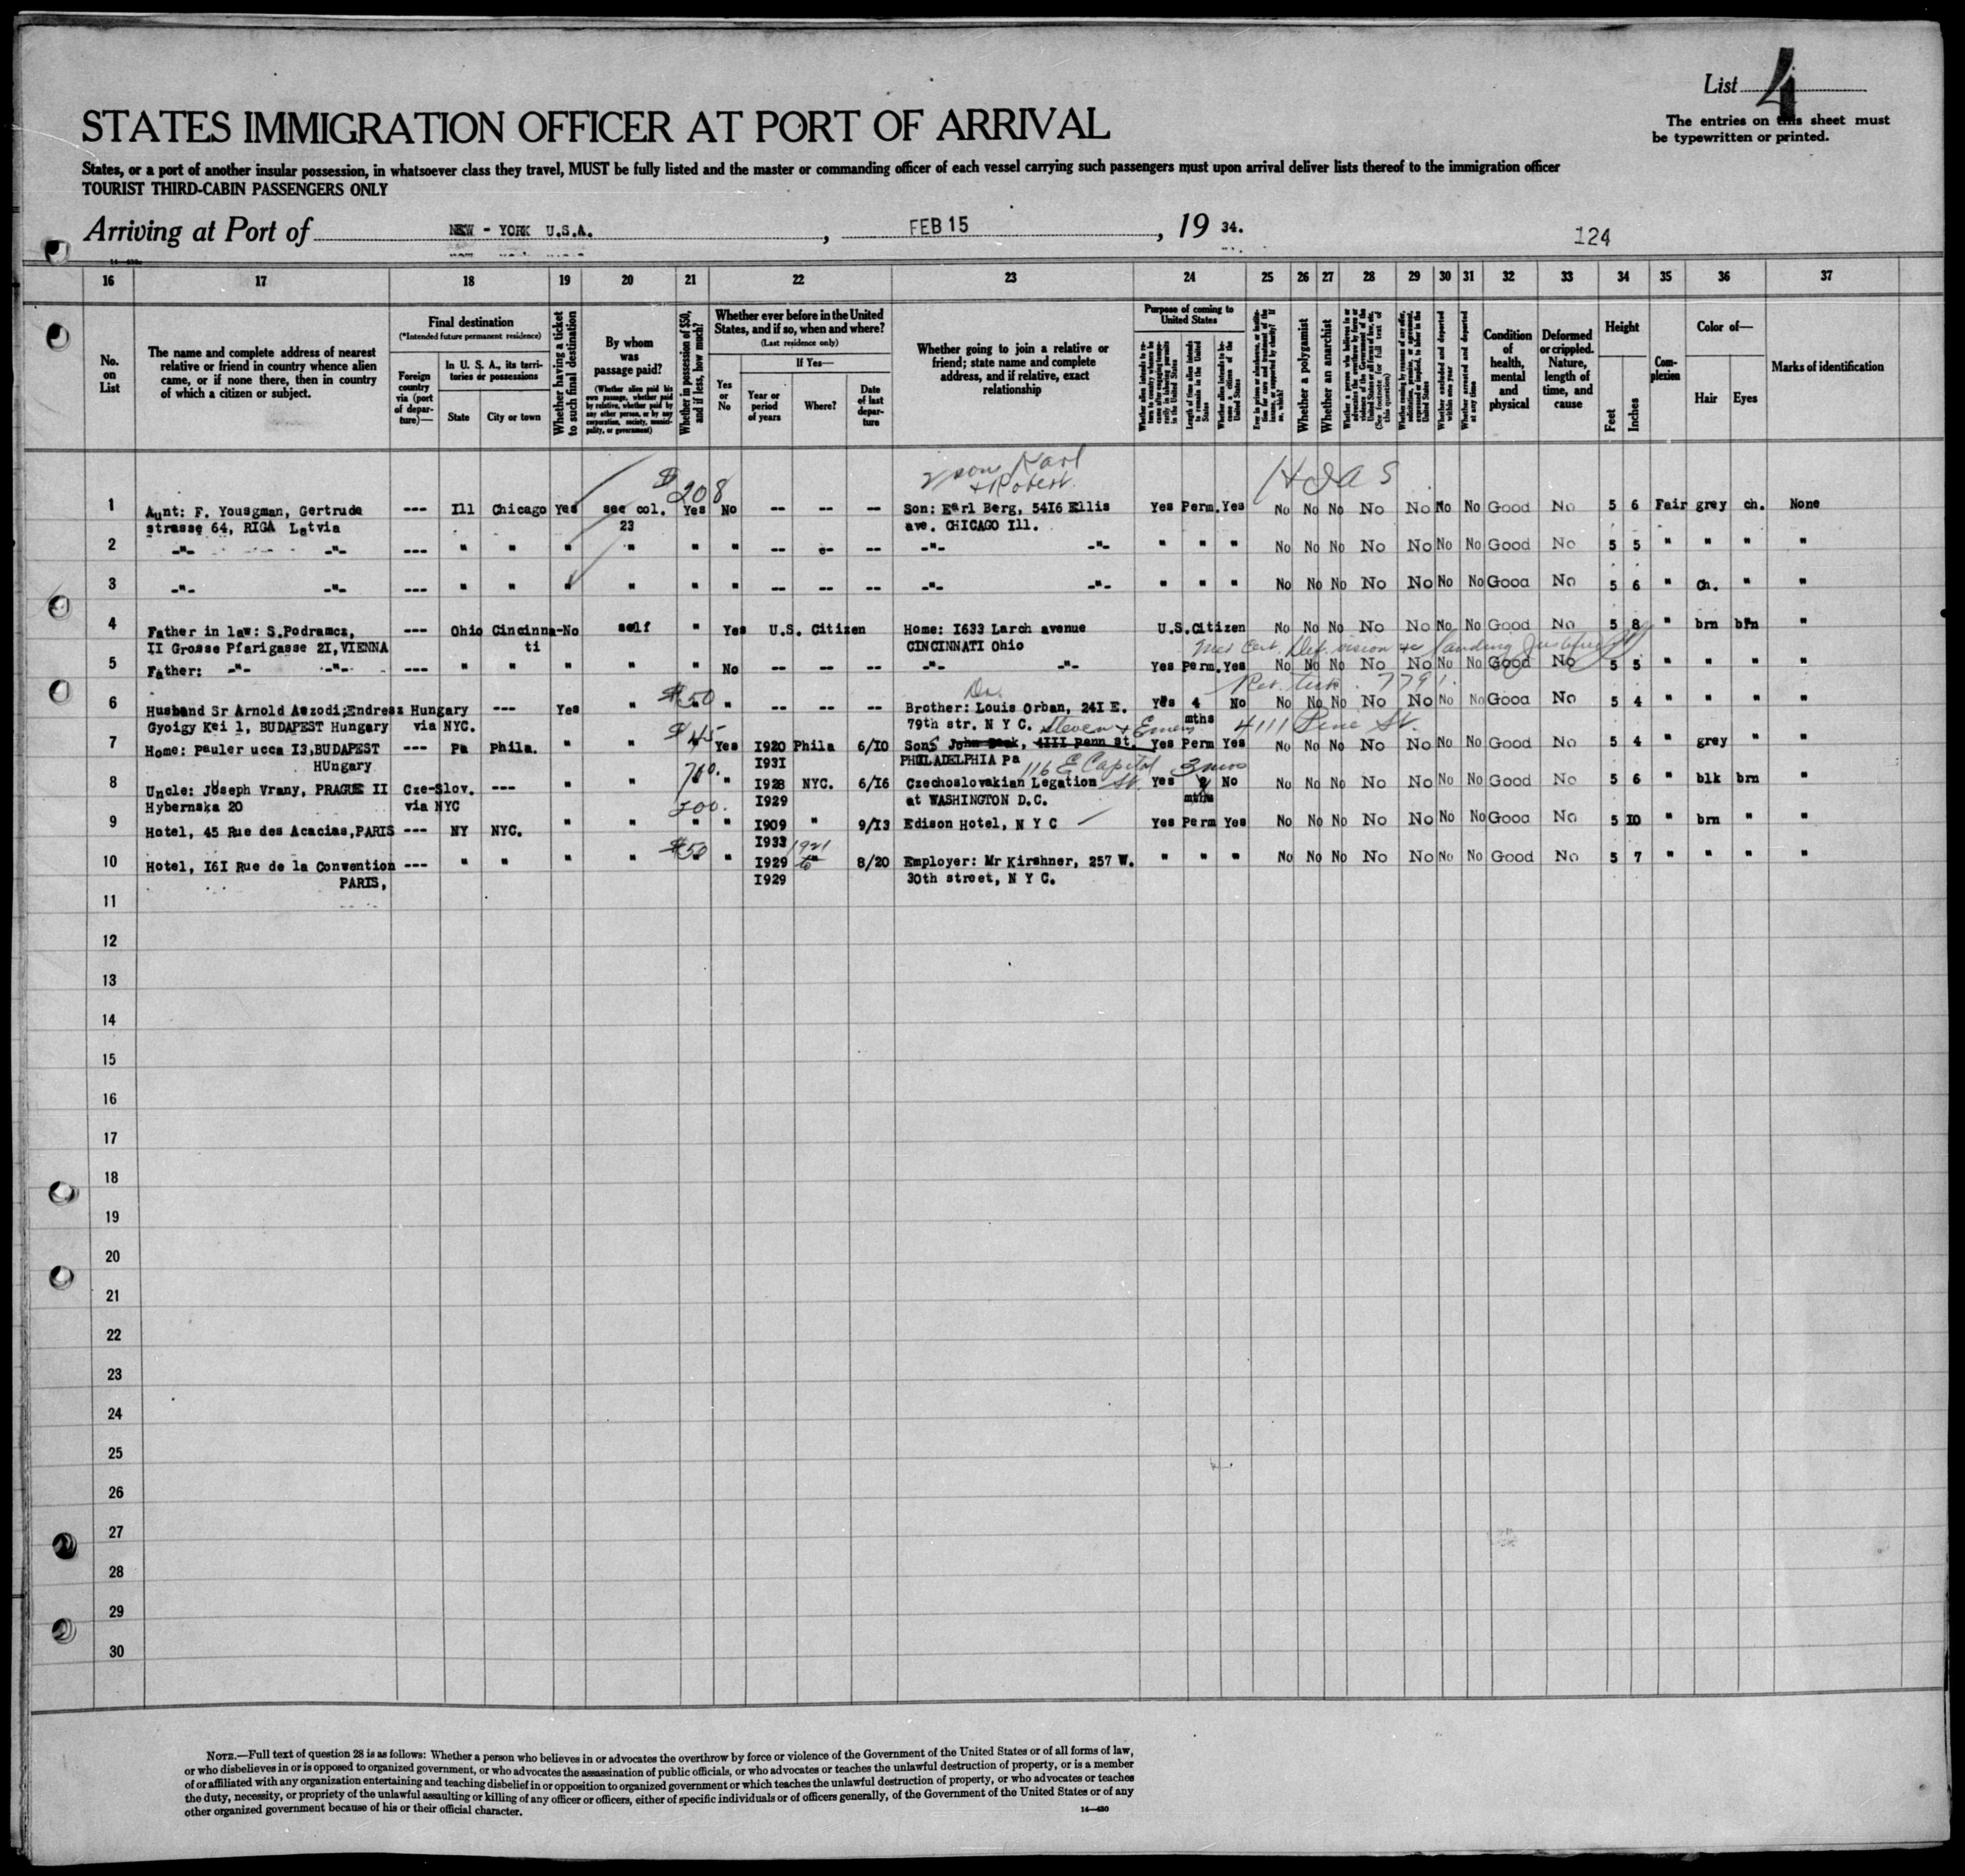 List 4
The entries on this sheet must
be typewritten or printed.
STATES IMMIGRATION OFFICER AT PORT OF ARRIVAL
States, or a port of another insular possession, in whatsoever class they travel, MUST be fully listed and the master or commanding officer of each vessel carrying such passengers must upon arrival deliver lists thereof to the immigration officer
TOURIST THIRD-CABIN PASSENGERS ONLY
Arriving at Port of NEW - YORK U.S.A. , FEB 15 , 19 34.
124
16 17 18 19 20 21 22 23 24 25 26 27 28 29 30 31 32 33 34 35 36 37
No. on List
The name and complete address of nearest relative or friend in country whence alien came, or if none there, then in country of which a citizen or subject.
Final destination
(*Intended future permanent residence)
Foreign country via (port of departure)—
In U. S. A., its territories or possessions
State
City or town
Whether having a ticket to such final destination
By whom was passage paid?
(Whether alien paid his own passage, whether paid by relative, whether paid by any other person, or by any corporation, society, municipality, or government)
Whether in possession of $50, and if less, how much?
Whether ever before in the United States, and if so, when and where?
(Last residence only)
Yes or No
If Yes—
Year or period of years
Where?
Date of last departure
Whether going to join a relative or friend; state name and complete address, and if relative, exact relationship
Purpose of coming to United States
Length of time alien intends to remain in the United States
Whether alien intends to become a citizen of the United States
Whether a polygamist
Whether an anarchist
Whether excluded and deported within one year
Whether arrested and deported at any time
Condition of health, mental and physical
Deformed or crippled. Nature, length of time, and cause
Height
Feet
Inches
Complexion
Color of—
Hair
Eyes
Marks of identification
Karl
+ Robert
$208
HIAS
1 Aunt: F. Yousgman, Gertrude --- Ill Chicago Yes see col. Yes No -- -- -- Son: Earl Berg, 54I6 Ellis Yes Perm. Yes No No No No No No No Good No 5 6 Fair grey ch. None
strasse 64, RIGA Latvia 23 ave. CHICAGO Ill.
2 -"- -"- --- " " " " " " -- -- -- -"- -"- " " " No No No No No No No Good No 5 5 " " " "
3 -"- -"- --- " " " " " " -- -- -- -"- -"- " " " No No No No No No No Good No 5 6 " Ch. " "
4 Father in law: S.Podramcz, --- Ohio Cincinna- No self " Yes U.S. Citizen Home: I633 Larch avenue U.S.Citizen No No No No No No No Good No 5 8 " brn brn "
II Grosse Pfarigasse 2I, VIENNA ti CINCINNATI Ohio
Med Cert. Def. vision
5 Father: -"- -"- --- " " " " " No -- -- -- -"- -"- Yes Perm. Yes No No No No No No No Good No 5 5 " " " "
$50 Dr. Ret. tick. 7791.
6 Husband Sr Arnold Aszodi;Endresz Hungary --- Yes " " -- -- -- Brother: Louis Orban, 24I E. Yes 4 No No No No No No No No Good No 5 4 " " " "
Gyoigy Kei 1, BUDAPEST Hungary via NYC. 79th str. N Y C. mths
$45 Steven + Emery 4111 Pine St.
7 Home: Pauler ucca I3,BUDAPEST --- Pa Phila. " " Yes I920 Phila 6/I0 Sons John, 4III Penn St. Yes Perm Yes No No No No No No No Good No 5 4 " grey " "
HUngary I93I PHILADELPHIA Pa
116 E Capitol St. 3 mos
8 Uncle: Joseph Vrany, PRAGUE II Cze-Slov. --- " " " I928 NYC. 6/I6 Czechoslovakian Legation Yes 2 No No No No No No No No Good No 5 6 " blk brn "
Hybernska 20 via NYC 200. I929 at WASHINGTON D.C. mths
9 Hotel, 45 Rue des Acacias,PARIS --- NY NYC. " " " " I909 " 9/I3 Edison Hotel, N Y C Yes Perm Yes No No No No No No No Good No 5 I0 " brn " "
I933 1921
10 Hotel, I6I Rue de la Convention --- " " " " $50 " I929 to 8/20 Employer: Mr Kirshner, 257 W. " " " No No No No No No No Good No 5 7 " " " "
PARIS, I929 30th street, N Y C.
11
12
13
14
15
16
17
18
19
20
21
22
23
24
25
26
27
28
29
30
NOTE.—Full text of question 28 is as follows: Whether a person who believes in or advocates the overthrow by force or violence of the Government of the United States or of all forms of law,
or who disbelieves in or is opposed to organized government, or who advocates the assassination of public officials, or who advocates or teaches the unlawful destruction of property, or is a member
of or affiliated with any organization entertaining and teaching disbelief in or opposition to organized government or which teaches the unlawful destruction of property, or who advocates or teaches
the duty, necessity, or propriety of the unlawful assaulting or killing of any officer or officers, either of specific individuals or of officers generally, of the Government of the United States or of any
other organized government because of his or their official character.
14—430